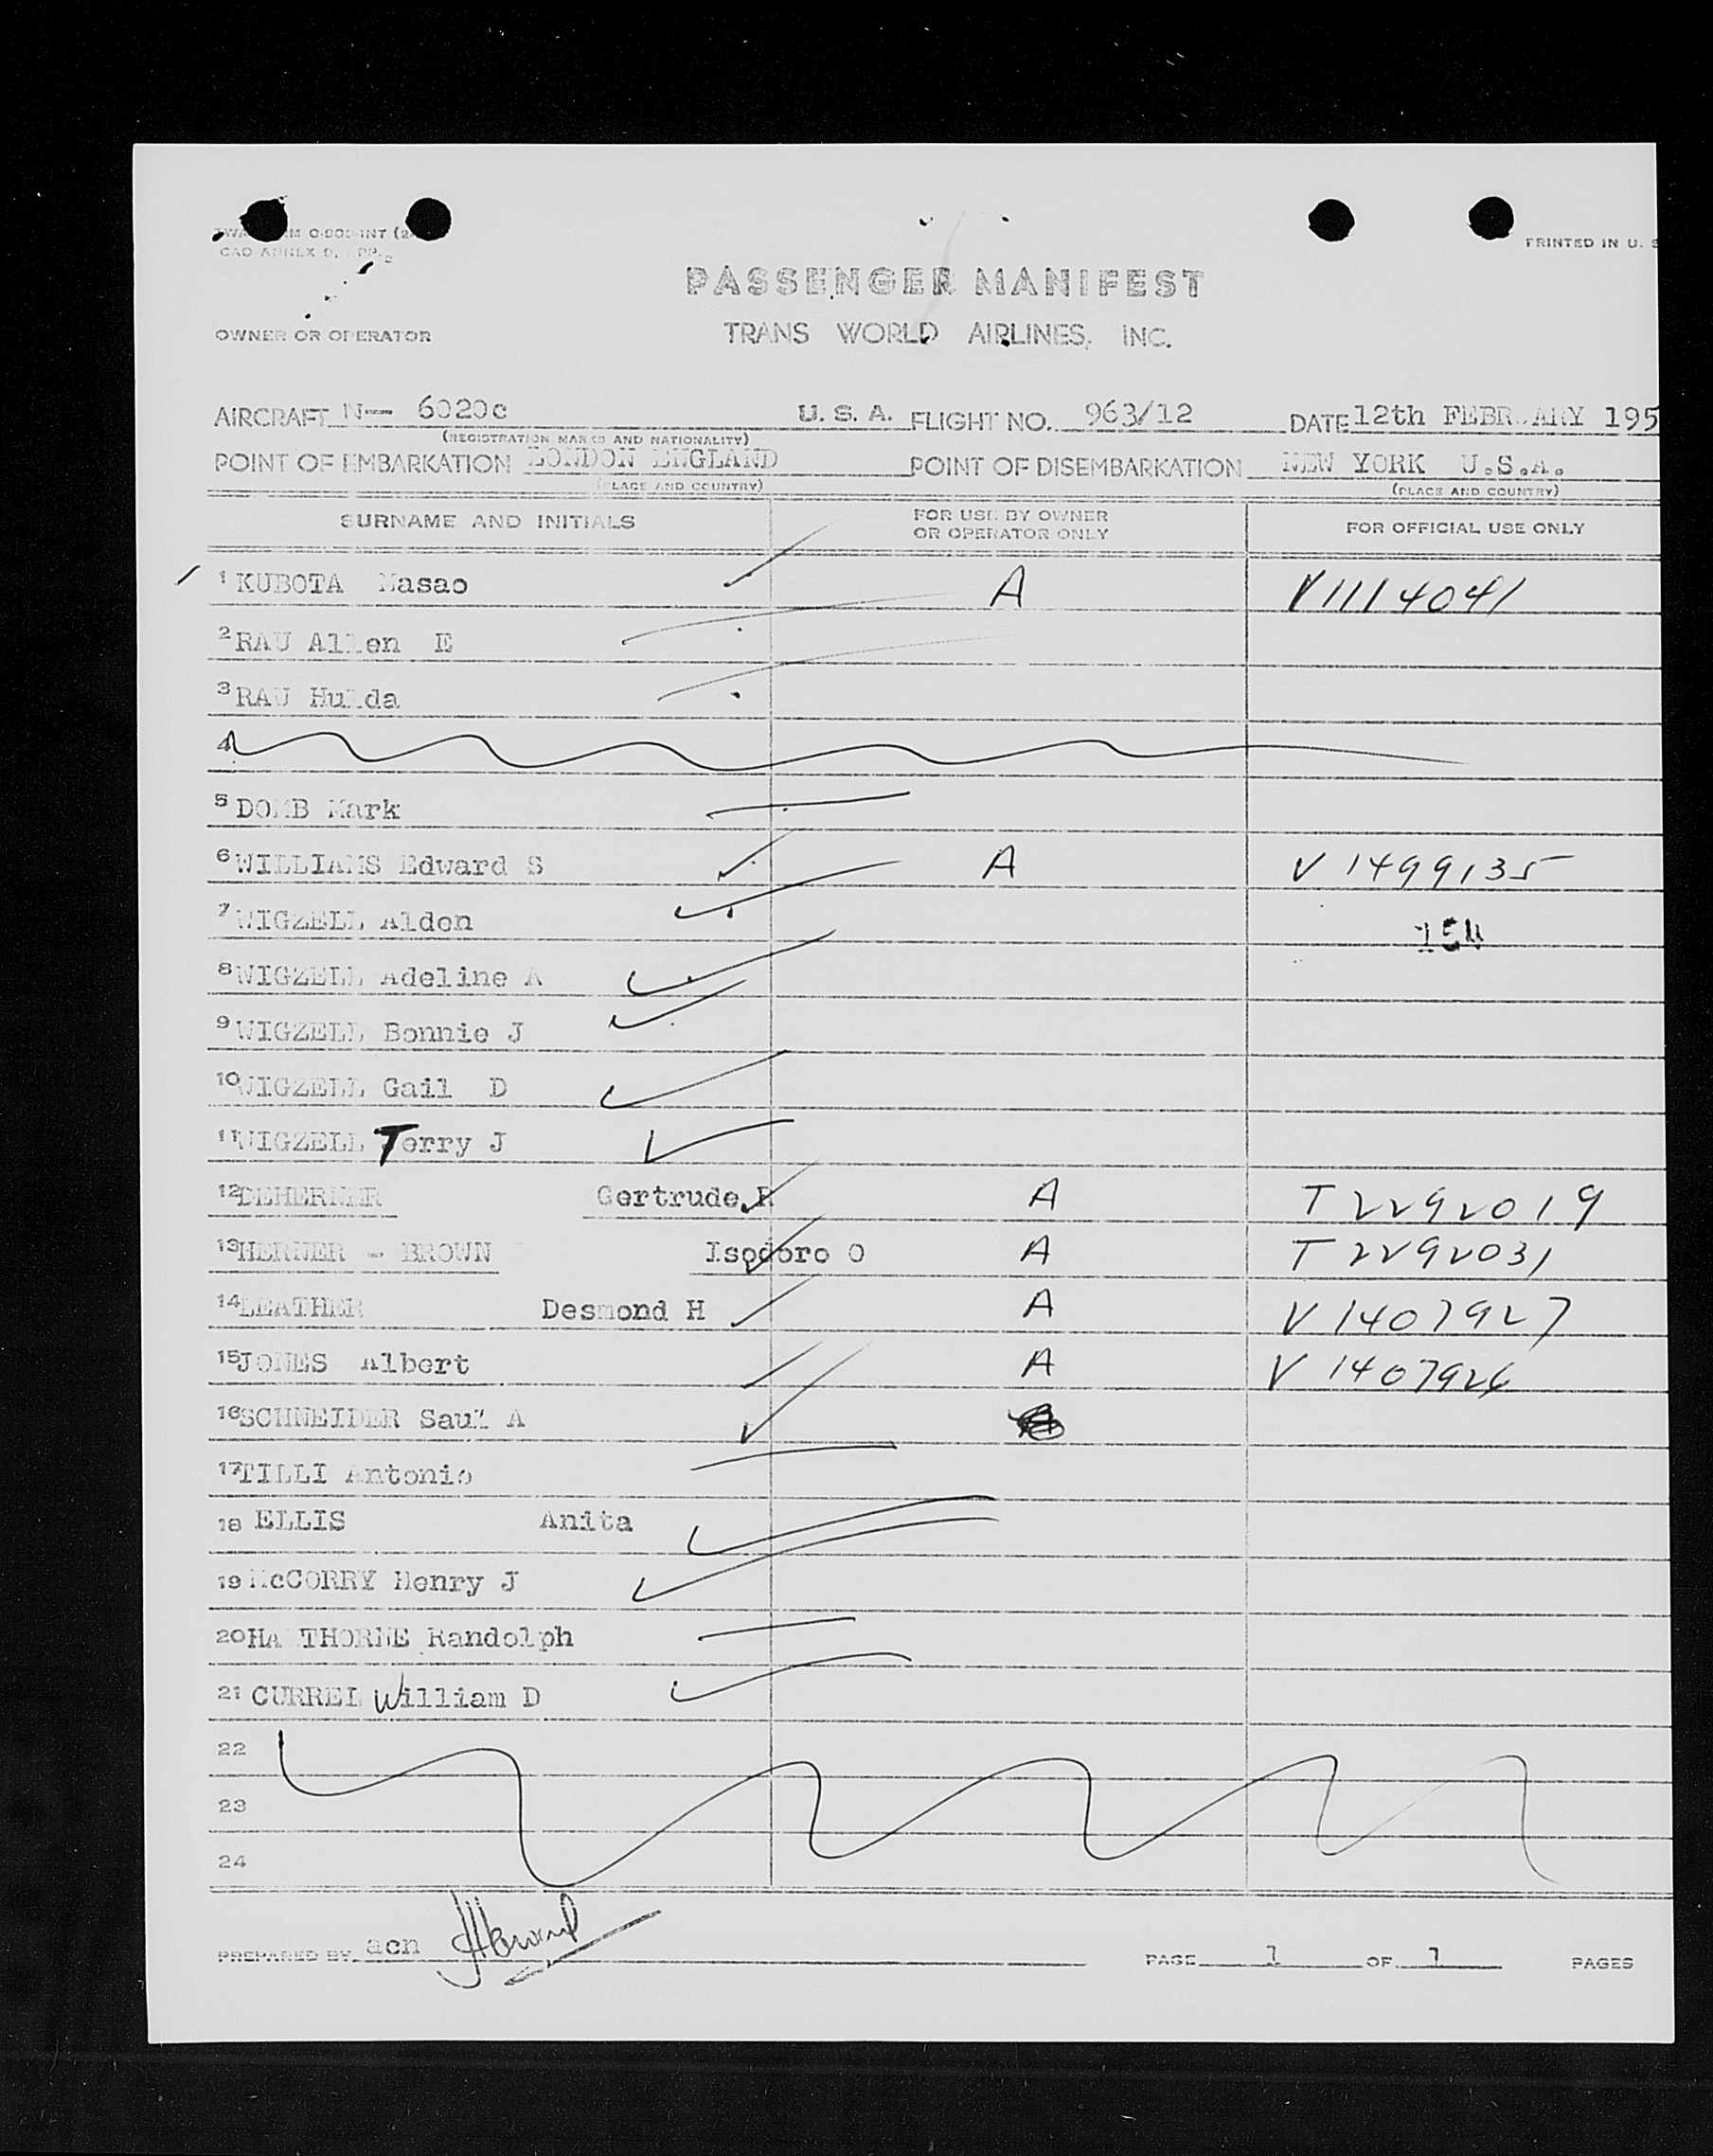 PRINTED IN U. S
PASSENGER MANIFEST
OWNER OR OPERATOR TRANS WORLD AIRLINES, INC.
AIRCRAFT N-- 6020c U. S. A. FLIGHT NO. 963/12 DATE 12th FEBRUARY 195
(REGISTRATION MARKS AND NATIONALITY)
POINT OF EMBARKATION LONDON ENGLAND POINT OF DISEMBARKATION NEW YORK U.S.A.
(PLACE AND COUNTRY) (PLACE AND COUNTRY)
SURNAME AND INITIALS FOR USE BY OWNER OR OPERATOR ONLY FOR OFFICIAL USE ONLY
1 KUBOTA Masao A V1114041
2 RAU Allen E
3 RAU Hulda
4
5 DOMB Mark
6 WILLIAMS Edward S A V 1499135
7 WIGZELL Alden
8 WIGZELL Adeline A
9 WIGZELL Bonnie J
10 WIGZELL Gail D
11 WIGZELL Terry J
12 DEHERNER Gertrude R A T 2292019
13 HERNER - BROWN Isodoro O A T 2292031
14 LEATHER Desmond H A V 1407927
15 JONES Albert A V 1407926
16 SCHNEIDER Saul A
17 TILLI Antonio
18 ELLIS Anita
19 McCORRY Henry J
20 HA THORNE Randolph
21 CURREL William D
22
23
24
PREPARED BY acn PAGE 1 OF 1 PAGES